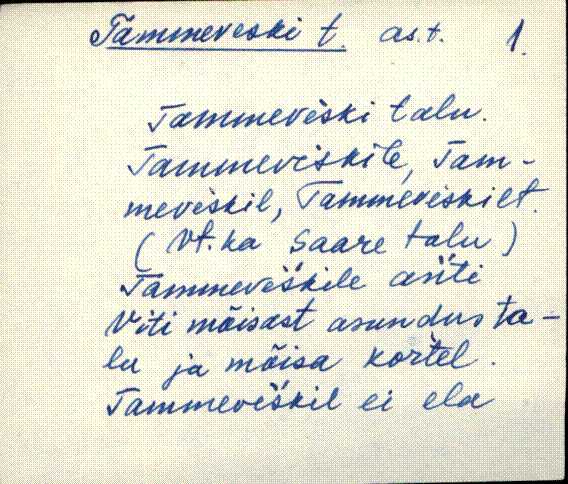 Tammeveski t. as.t. 1.
Tammeve̍ski talu.
Tammeve̍skile, Tam-
meve̍skil, Tammeve̍skilt.
(Vt. ka Saare talu)
Tammeve̍skile as̍ti
Viti mõisast asundusta-
lu ja mõisa kortel.
Tammeve̍skil ei ela